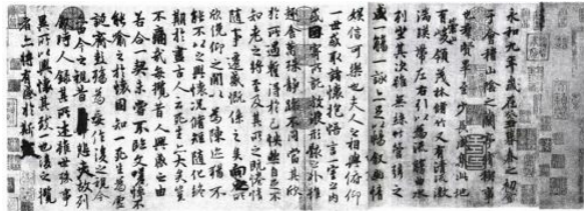 永和九年歲在癸丑暮春之初會
于會稽山陰之蘭亭脩禊事
也羣賢畢至少長咸集此地
有崇山峻領茂林脩竹又有清流激
湍暎帶左右引以為流觴曲水
列坐其次雖無絲竹管弦之
盛一觴一詠亦足以暢敘幽情
娛信可樂也夫人之相與俯仰
一世或取諸懷抱悟言一室之內
或因寄所託放浪形骸之外雖
趣舍萬殊靜躁不同當其欣
於所遇暫得於己怏然自足不
知老之將至及其所之既惓情
隨事遷感慨係之矣向之所
欣俛仰之間以為陳迹猶不
能不以之興懷況脩短隨化終
期於盡古人云死生亦大矣豈
不痛哉每攬昔人興感之由
若合一契未嘗不臨文嗟悼不
能喻之於懷固知一死生為虛
誕齊彭殤為妄作後之視今
亦由今之視昔悲夫故列
敘時人錄其所述雖世殊事
異所以興懷其致一也後之攬
者亦將有感於斯文